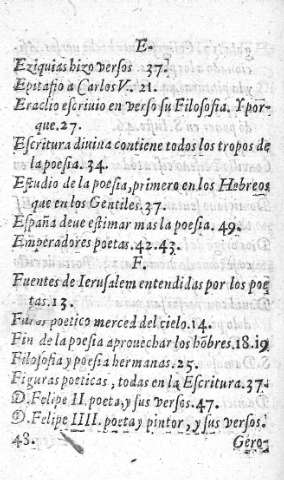 E.
Eziquias hizo versos 37.
Epitafio a Carlos V. 21.
Eraclio escriuio en verso su Filosofia. Y por
que. 27.
Escritura divina contiene todos los tropos de
la poesia. 34.
Estudio de la poesia, primero en los Hebreos
que en los Gentiles. 37.
España deue estimar mas la poesia. 49.
Emperadores poetas. 42. 43.
F.
Fuentes de Ierusalem entendidas por los poe
tas. 13.
Furor poetico merced del cielo. 14.
Fin de la poesia aprouechar los hõbres. 18. 19
Filosofia y poesia hermanas. 25.
Figuras poeticas, todas en la Escritura. 37.
D. Felipe II. poeta, y sus versos. 47.
D. Felipe IIII. poeta y pintor, y sus versos.
48. Gero-